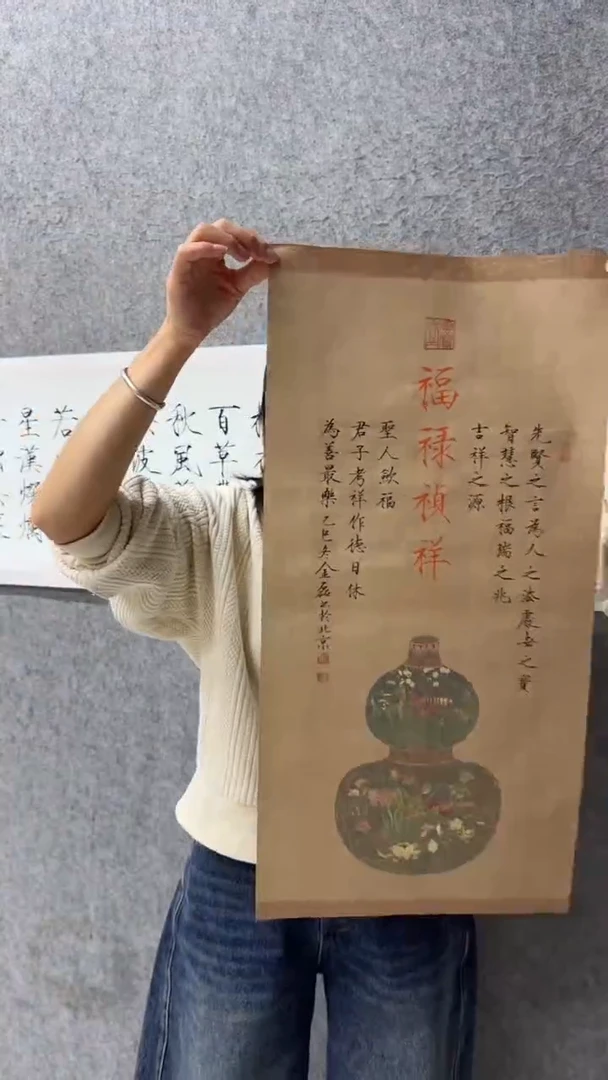 福禄禎祥
先賢之言為人之法處世之寶
智慧之根福瑞之兆
吉祥之源
聖人歛福
君子考祥作德日休
為善最樂 乙巳冬金磊书於北京
百草
秋風
波
若
星漢燦爛